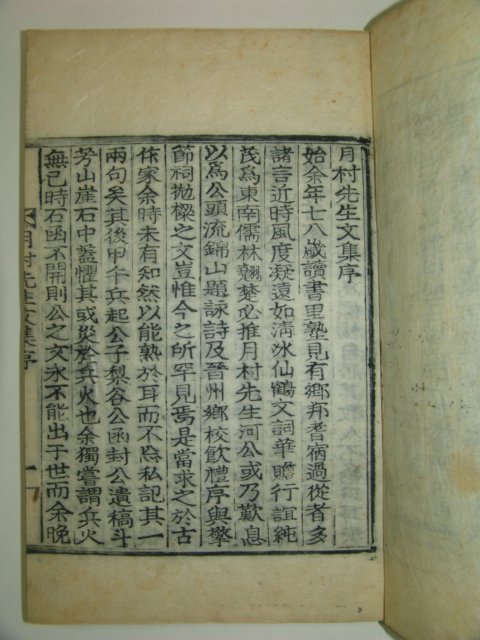 月村先生文集序
始余年七八歲讀書里塾見有鄕邦耆宿過從者多
諸言近時風度凝遠如淸氷仙鶴文詞華贍行誼純
茂爲東南儒林翹楚必推月村先生河公或乃歎息
以爲公頭流錦山題詠詩及晉州鄕校飮禮序與擎
節祠拋樑之文豈惟今之所罕見焉是當求之於古
作家余時未有知然以能熟於耳而不忘私記其一
兩句矣其後甲午兵起公子梨谷公函封公遺稿斗
芳山崖石中蓋懼其或災於兵火也余獨嘗謂兵火
無已時石函不開則公之文永不能出于世而余晩
月村先生文集序
一